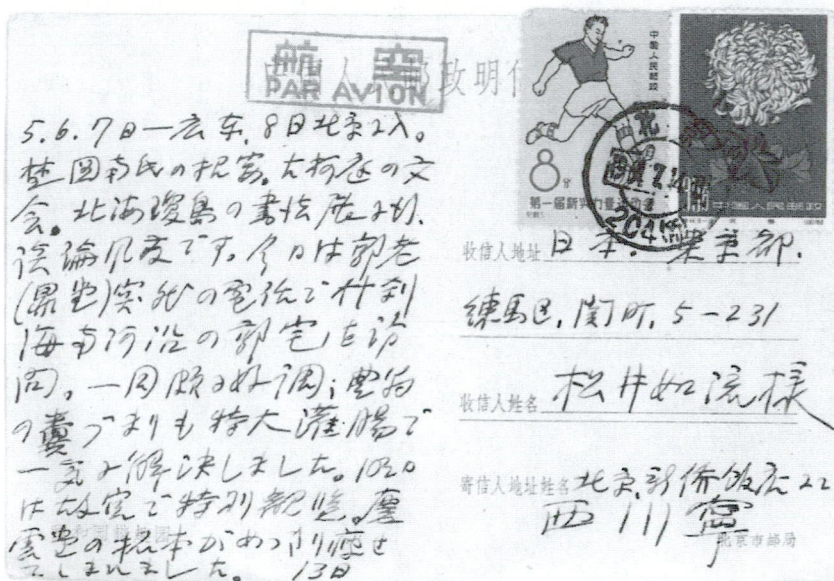 航空
PAR AVION
中国人民邮政
8分
第一届新兴力量运动会
中国人民邮政
北京
5.6.7日一広东.8日北京に入。
楚図南氏の招宴。
会。北海瓊島の書法展
談論風发です。今日は郭老
(鼎堂)突然の電話で什刹
海南河沿の郭宅を訪
问。一同頗る好调;豊翁
の糞づまりも特大灌腸で
一気に解決しました。
は故宮で特別観覧。
雲堂の拓本がめっ
てしまいました。 13日
收信人地址 日本.東京都.
練馬区.関町.5-231
收信人姓名 松井如流様
寄信人地址姓名 北京新侨饭店22
西川寧
北京市邮局